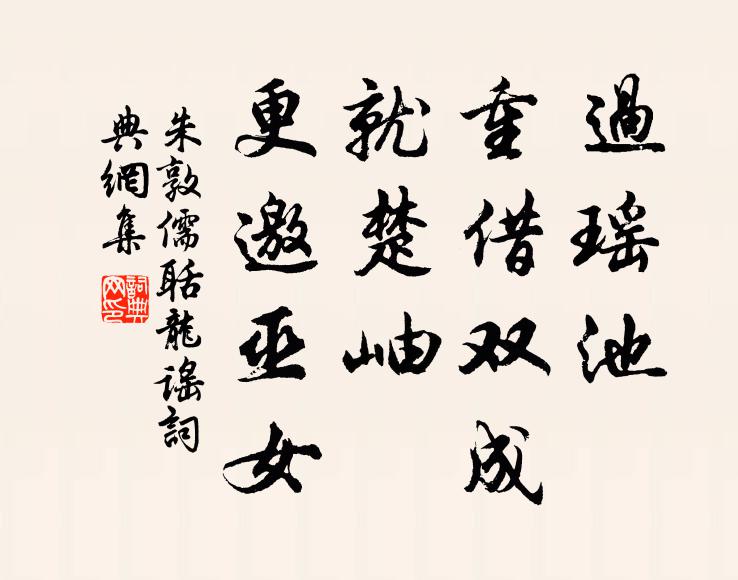 過瑶池
重借双成
就楚岫
更邀巫女
朱敦儒聒龍謡詞
典網集
詞典网印